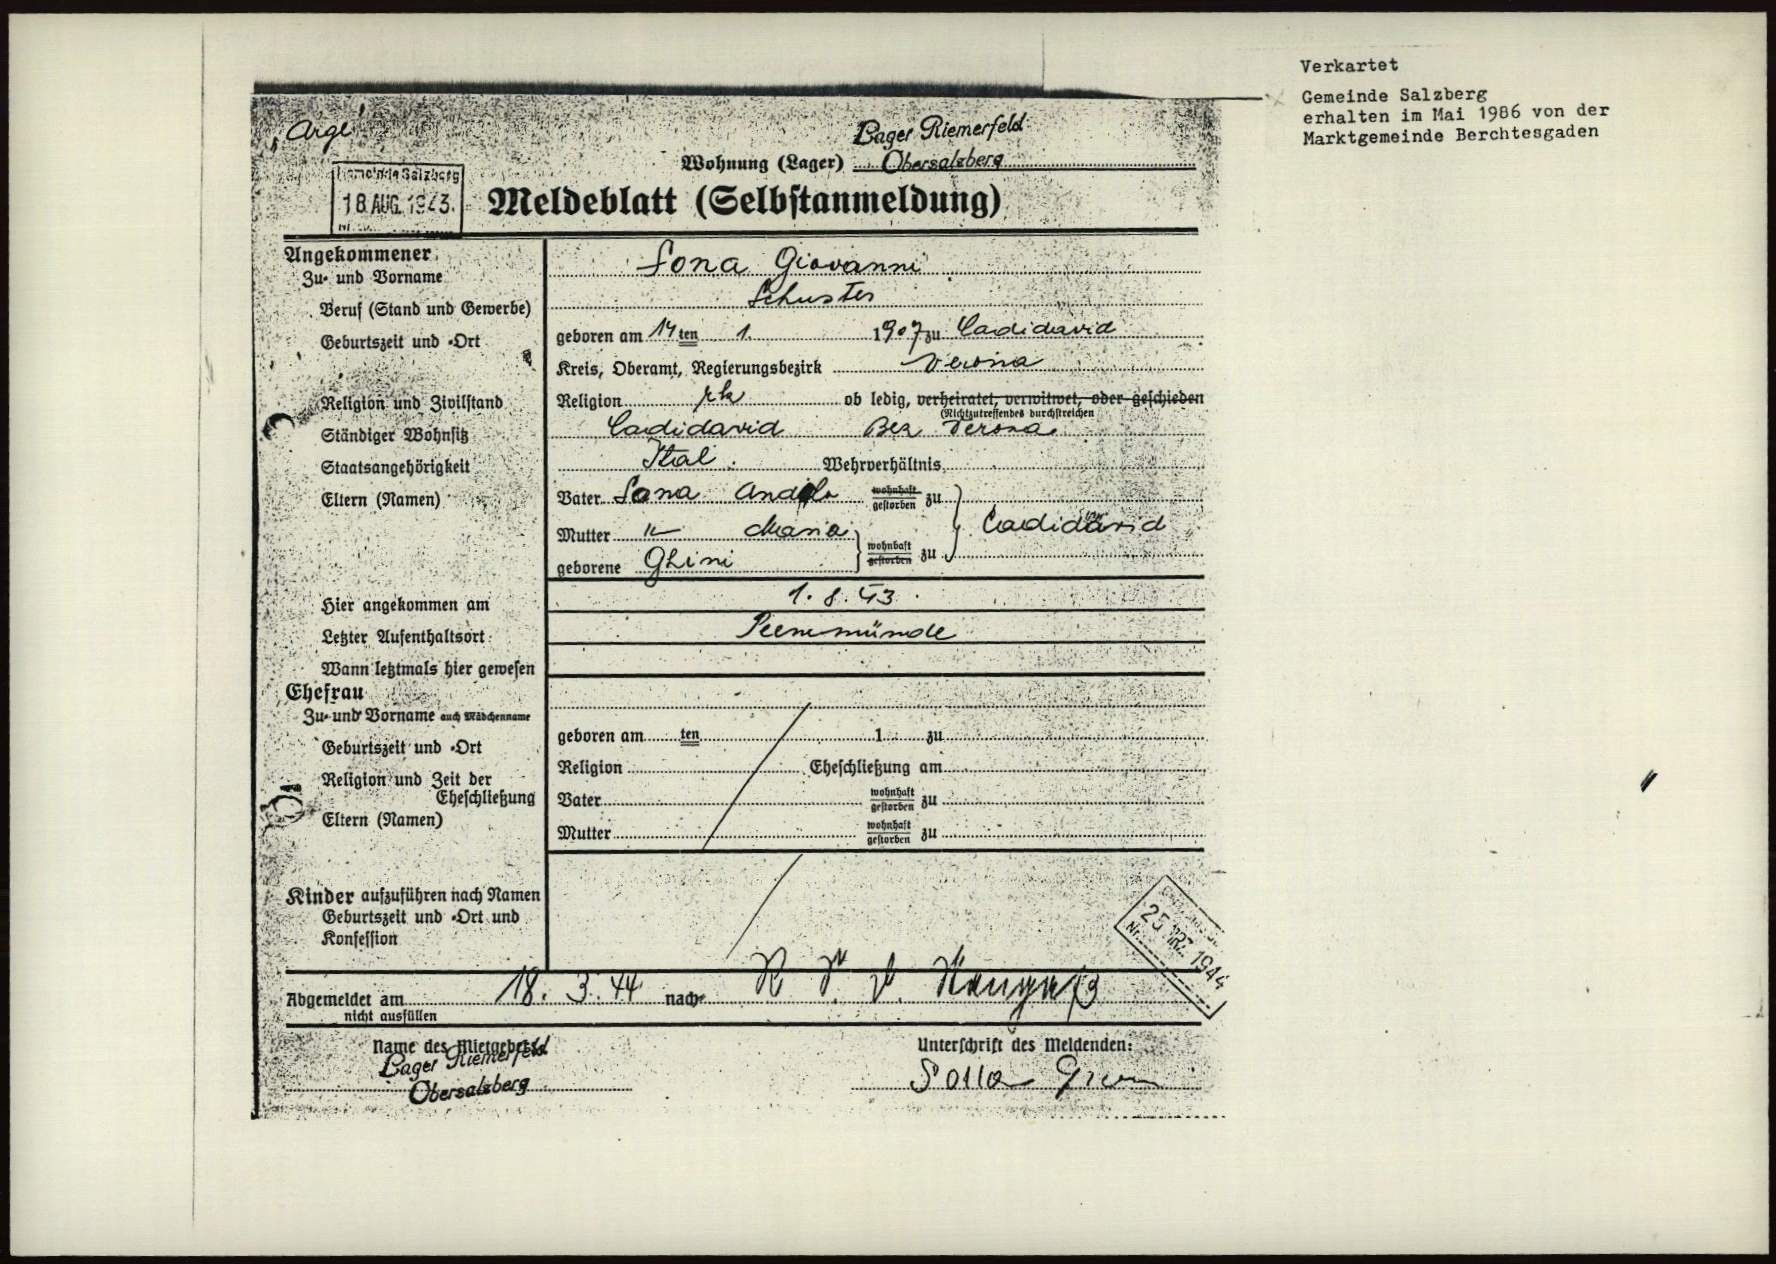 Verkartet
Gemeinde Salzberg
erhalten im Mai 1986 von der
Marktgemeinde Berchtesgaden
"Arge"
Lager Riemerfeld
Wohnung (Lager) Obersalzberg
Gemeinde Salzberg
18. AUG. 1943.
Meldeblatt (Selbstanmeldung)
Angekommener
Zu- und Vorname Sona Giovanni
Beruf (Stand und Gewerbe) Schuster
Geburtszeit und -Ort geboren am 14 ten 1. 1907 zu Cadidavid
Kreis, Oberamt, Regierungsbezirk Verona
Religion und Zivilstand Religion rk ob ledig, verheiratet, verwitwet, oder geschieden
(Nichtzutreffendes durchstreichen
Ständiger Wohnsitz Cadidavid Bez Verona
Staatsangehörigkeit Ital. Wehrverhältnis
Eltern (Namen) Vater Sona wohnhaft gestorben zu
Mutter " Maria Cadidavid
geborene Ghini wohnhaft gestorben zu
Hier angekommen am 1. 8. 43.
Letzter Aufenthaltsort Peenemünde
Wann letztmals hier gewesen
Ehefrau
Zu- und Vorname auch Mädchenname
Geburtszeit und -Ort geboren am ten 1 zu
Religion und Zeit der Eheschließung Religion Eheschließung am
Eltern (Namen) Vater wohnhaft gestorben zu
Mutter wohnhaft gestorben zu
Kinder aufzuführen nach Namen
Geburtszeit und -Ort und
Konfession
25. MRZ. 1944
Nr.
Abgemeldet am 18. 3. 44 nach
nicht ausfüllen
Name des Mietgebers: Unterschrift des Meldenden:
Lager Riemerfeld
Obersalzberg Sona